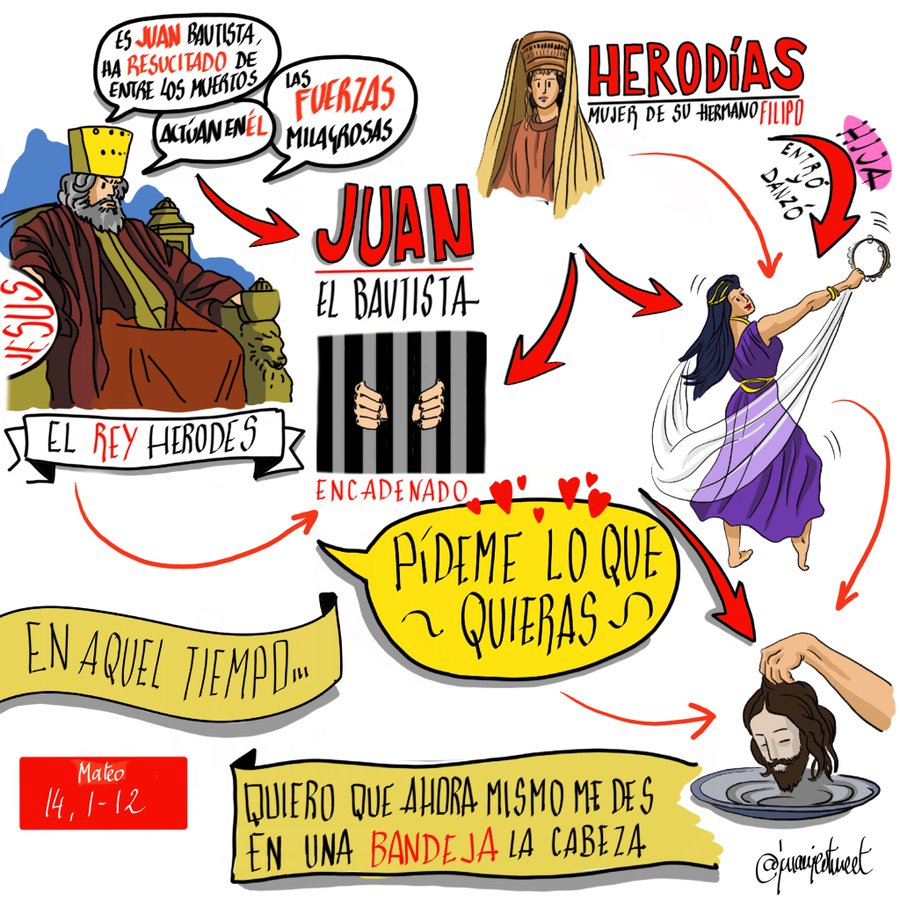 ES JUAN BAUTISTA,
HA RESUCITADO DE
ENTRE LOS MUERTOS
LAS
FUERZAS
MILAGROSAS
ACTÚAN EN ÉL
HERODÍAS
MUJER DE SU HERMANO FILIPO
HIJA
ENTRÓ
Y
DANZÓ
JESUS
JUAN
EL BAUTISTA
EL REY HERODES
ENCADENADO
PÍDEME LO QUE
QUIERAS
EN AQUEL TIEMPO...
Mateo
14, 1-12
QUIERO QUE AHORA MISMO ME DES
EN UNA BANDEJA LA CABEZA
@juanjetweet